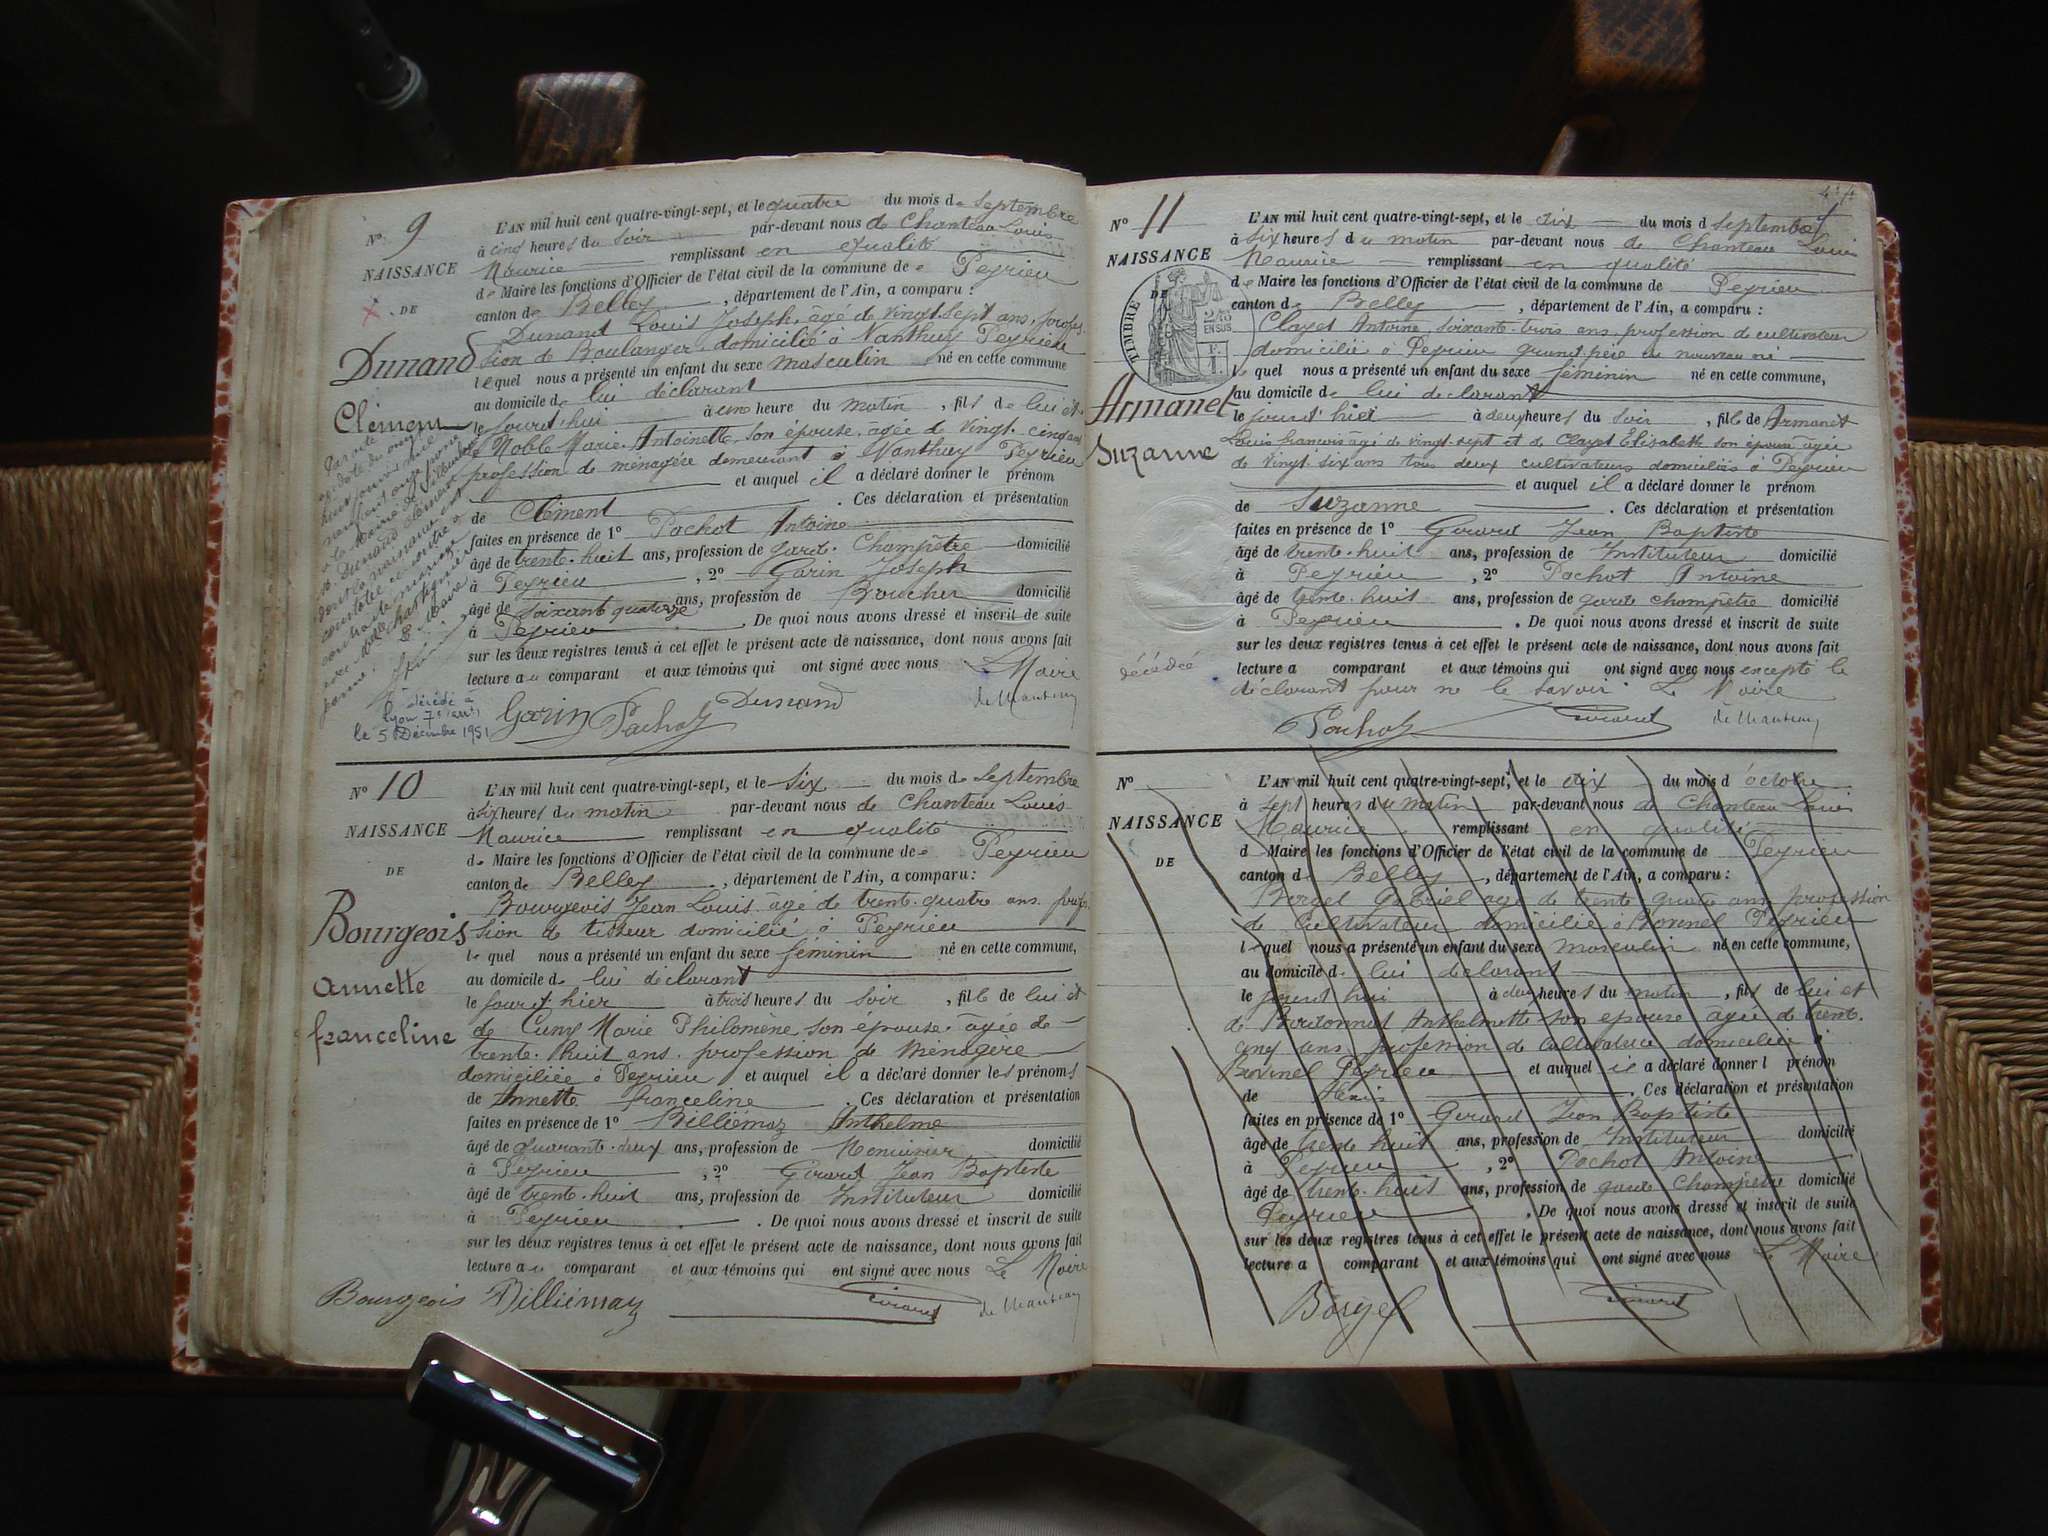 N° 9
NAISSANCE
DE
Dunand
Clément
décédé à
Lyon 7e (arrt)
le 5 Décembre 1951
L'AN mil huit cent quatre-vingt-sept, et le quatre du mois de Septembre
à cinq heures du soir par-devant nous de Chanteau Louis
Maurice remplissant en qualité
de Maire les fonctions d'Officier de l'état civil de la commune de Peyrieu
canton de Belley, département de l'Ain, a comparu :
Dunand Louis Joseph, âgé de vingt-sept ans, profes-
sion de Boulanger domicilié à Nanthuy Peyrieu
lequel nous a présenté un enfant du sexe masculin né en cette commune
au domicile de lui déclarant
le jourd'hui à une heure du matin, fils de lui et
de Noble Marie Antoinette son épouse âgée de vingt-cinq ans
profession de ménagère demeurant à Nanthuy Peyrieu
et auquel il a déclaré donner le prénom
de Clément. Ces déclaration et présentation
faites en présence de 1° Pochot Antoine
âgé de trente-huit ans, profession de garde-Champêtre domicilié
à Peyrieu, 2° Garin Joseph
âgé de soixante quatorze ans, profession de Boucher domicilié
à Peyrieu. De quoi nous avons dressé et inscrit de suite
sur les deux registres tenus à cet effet le présent acte de naissance, dont nous avons fait
lecture au comparant et aux témoins qui ont signé avec nous Le Maire
Garin Pochot Dunand
N° 10
NAISSANCE
DE
Bourgeois
Annette
franceline
L'AN mil huit cent quatre-vingt-sept, et le six du mois de Septembre
à six heures du matin par-devant nous de Chanteau Louis
Maurice remplissant en qualité
de Maire les fonctions d'Officier de l'état civil de la commune de Peyrieu
canton de Belley, département de l'Ain, a comparu :
Bourgeois Jean Louis agé de trente-quatre ans profes-
sion de tisseur domicilié à Peyrieu
lequel nous a présenté un enfant du sexe féminin né en cette commune,
au domicile de lui déclarant
le jourd'hier à trois heures du soir, fille de lui et
de Cuny Marie Philomène son épouse âgée de
trente-huit ans profession de Ménagère
domiciliée à Peyrieu et auquel il a déclaré donner les prénoms
de Annette franceline. Ces déclaration et présentation
faites en présence de 1° Billiémaz Anthelme
âgé de quarante-deux ans, profession de Menuisier domicilié
à Peyrieu, 2° Girard Jean Baptiste
âgé de trente-huit ans, profession de Instituteur domicilié
à Peyrieu. De quoi nous avons dressé et inscrit de suite
sur les deux registres tenus à cet effet le présent acte de naissance, dont nous avons fait
lecture au comparant et aux témoins qui ont signé avec nous Le Maire
Bourgeois Billiémaz Girard
N° 11
NAISSANCE
DE
TIMBRE
Armanet
Suzanne
décédée
L'AN mil huit cent quatre-vingt-sept, et le dix du mois d Septembre
à six heures du matin par-devant nous de Chanteau Louis
Maurice remplissant en qualité
de Maire les fonctions d'Officier de l'état civil de la commune de Peyrieu
canton de Belley, département de l'Ain, a comparu :
Clayet Antoine, soixante-trois ans profession de cultivateur
domicilié à Peyrieu grand père du nouveau né
lequel nous a présenté un enfant du sexe féminin né en cette commune,
au domicile de lui déclarant
le jourd'hier à deux heures du soir, fille de Armanet
Louis françois agé de vingt-sept et de Clayet Elisabeth son épouse agée
de vingt-six ans tous deux cultivateurs domiciliés à Peyrieu
et auquel il a déclaré donner le prénom
de Suzanne. Ces déclaration et présentation
faites en présence de 1° Girard Jean Baptiste
âgé de trente-huit ans, profession de Instituteur domicilié
à Peyrieu, 2° Pochot Antoine
âgé de trente-huit ans, profession de garde champêtre domicilié
à Peyrieu. De quoi nous avons dressé et inscrit de suite
sur les deux registres tenus à cet effet le présent acte de naissance, dont nous avons fait
lecture a comparant et aux témoins qui ont signé avec nous excepté le
déclarant pour ne le savoir Le Maire
Pochot Girard
N°
NAISSANCE
DE
L'AN mil huit cent quatre-vingt-sept, et le dix du mois d'octobre
à sept heures du matin par-devant nous de Chanteau Louis
Maurice remplissant en qualité
d Maire les fonctions d'Officier de l'état civil de la commune de Peyrieu
canton de Belley, département de l'Ain, a comparu :
Borgel Gabriel agé de trente quatre ans profession
de Cultivateur domicilié à Bovinel Peyrieu
lequel nous a présenté un enfant du sexe masculin né en cette commune,
au domicile de lui déclarant
le jourd'hui à deux heures du matin, fils de lui et
de Anthelmette son épouse agée de trente-
cinq ans profession de Cultivatrice domiciliée à
Bovinel Peyrieu et auquel il a déclaré donner l prénom
de Alexis. Ces déclaration et présentation
faites en présence de 1° Gerard Jean Baptiste
âgé de trente huit ans, profession de Instituteur domicilié
à Peyrieu, 2° Pochot Antoine
âgé de trente-huit ans, profession de garde Champêtre domicilié
Peyrieu. De quoi nous avons dressé et inscrit de suite
sur les deux registres tenus à cet effet le présent acte de naissance, dont nous avons fait
lecture a comparant et aux témoins qui ont signé avec nous Le Maire
Borgel Girard